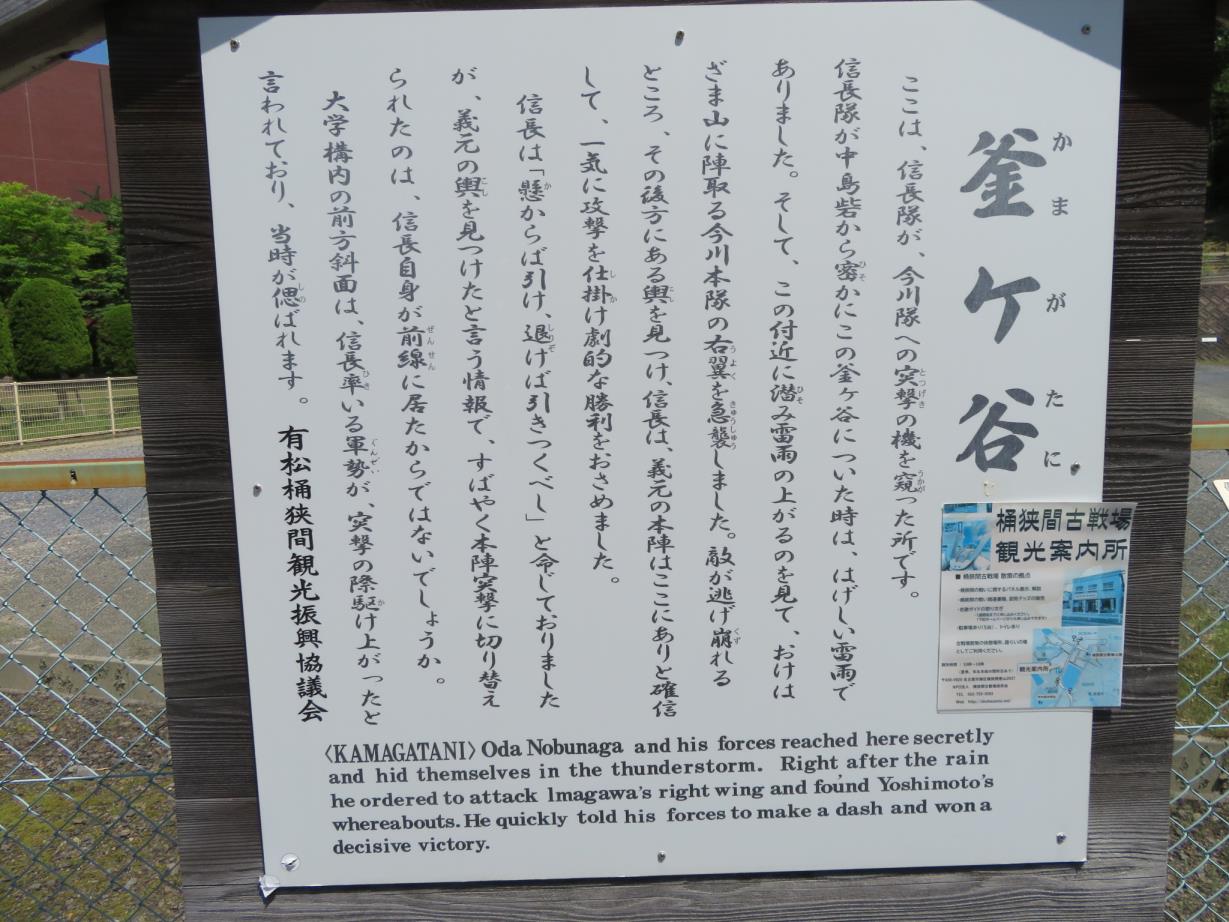 釜ヶ谷
かまがたに
ここは、信長隊が、今川隊への突撃の機を窺った所です。
信長隊が中島砦から密かにこの釜ヶ谷についた時は、はげしい雷雨で
ありました。そして、この付近に潜み雷雨の上がるのを見て、おけは
ざま山に陣取る今川本隊の右翼を急襲しました。敵が逃げ崩れる
ところ、その後方にある輿を見つけ、信長は、義元の本陣はここにありと確信
して、一気に攻撃を仕掛け劇的な勝利をおさめました。
信長は「懸からば引け、退けば引きつくべし」と令じておりました
が、義元の輿を見つけたと言う情報で、すばやく本陣突撃に切り替え
られたのは、信長自身が前線に居たからではないでしょうか。
大学構内の前方斜面は、信長率いる軍勢が、突撃の際駆け上がったと
言われており、当時が偲ばれます。
有松桶狭間観光振興協議会
〈KAMAGATANI〉Oda Nobunaga and his forces reached here secretly
and hid themselves in the thunderstorm. Right after the rain
he ordered to attack Imagawa's right wing and found Yoshimoto's
whereabouts. He quickly told his forces to make a dash and won a
decisive victory.
桶狭間古戦場
観光案内所
■ 桶狭間古戦場 散策の拠点
観光案内所